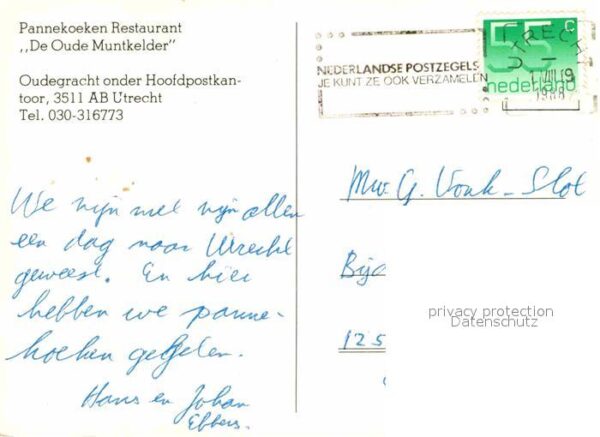 Pannekoeken Restaurant
,,De Oude Muntkelder"
Oudegracht onder Hoofdpostkan-
toor, 3511 AB Utrecht
Tel. 030-316773
We zijn met zijn allen
een dag naar Utrecht
geweest. En hier
hebben we panne-
koeken gegeten.
Hans en Johan
Ebbers.
NEDERLANDSE POSTZEGELS
JE KUNT ZE OOK VERZAMELEN
UTRECHT
1988
55 c
nederland
Mw. G. Vonk-Slot
Bijo
125
privacy protection
Datenschutz